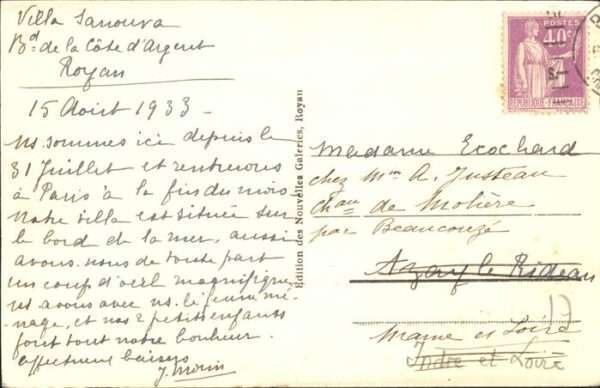 Villa Sanouva
Bd de la Côte d'Argent
Royan
15 Août 1933 -
ns. sommes ici depuis le
31 Juillet et rentrerons
à Paris à la fin du mois
Notre villa est située sur
le bord de la mer, aussi
avons-nous de toute part
un coup d'œil magnifique,
ns avons avec ns. le jeune mé-
nage, et nos 2 petits enfants
font tout notre bonheur.
affectueux baisers
J. Morin
Edition des Nouvelles Galeries, Royan
POSTES
40c
REPUBLIQUE FRANÇAISE
Madame Ecochard
chez Mme A. Justeau
chau de Molière
par Beaucouzé
Azay le Rideau
17
Maine et Loire
Indre et Loire